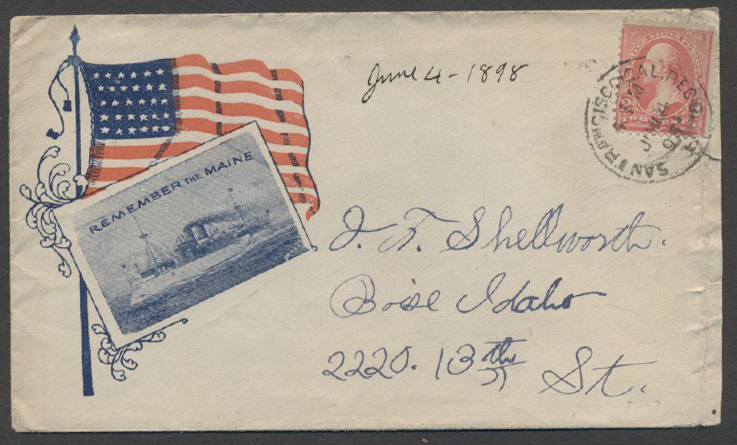 June 4 - 1898
SAN FRANCISCO, CAL. REC'D
REMEMBER THE MAINE
J. T. Shellworth.
Boise Idaho
2220. 13th St.